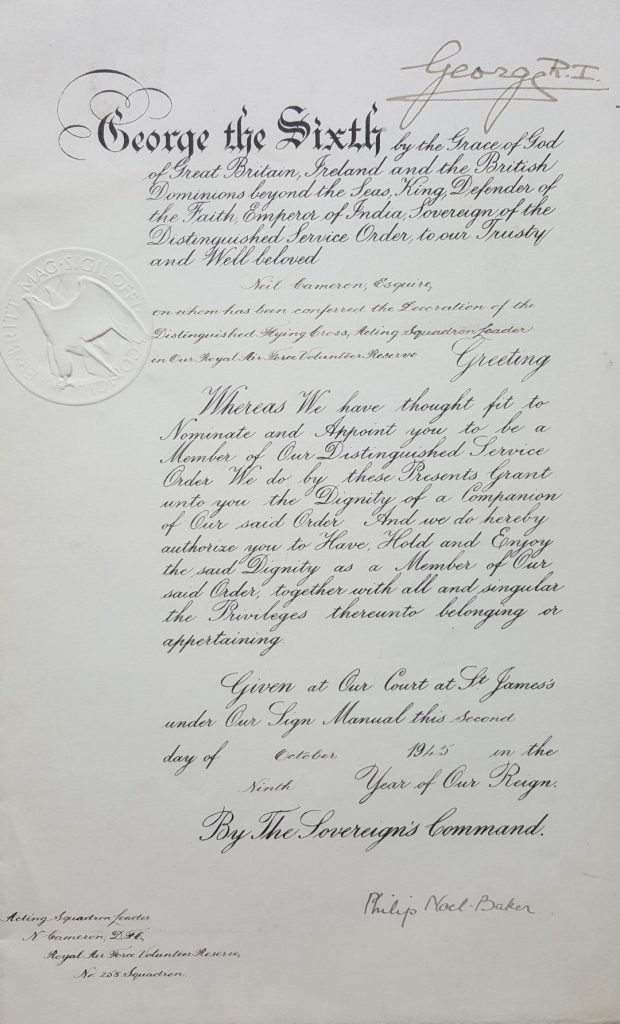 George R.I.
George the Sixth by the Grace of God
of Great Britain, Ireland and the British
Dominions beyond the Seas, King, Defender of
the Faith, Emperor of India, Sovereign of the
Distinguished Service Order, to our Trusty
and Well beloved
Neil Cameron, Esquire,
on whom has been conferred the Decoration of the
Distinguished Flying Cross, Acting Squadron Leader
in Our Royal Air Force Volunteer Reserve Greeting
Whereas We have thought fit to
Nominate and Appoint you to be a
Member of Our Distinguished Service
Order We do by these Presents Grant
unto you the Dignity of a Companion
of Our said Order And we do hereby
authorize you to Have, Hold and Enjoy
the said Dignity as a Member of Our
said Order, together with all and singular
the Privileges thereunto belonging or
appertaining.
Given at Our Court at St. James's
under Our Sign Manual this second
day of October 1945 in the
Ninth Year of Our Reign.
By The Sovereign's Command.
Philip Noel-Baker
Acting Squadron Leader
N. Cameron, D.F.C.,
Royal Air Force Volunteer Reserve,
No 258 Squadron.